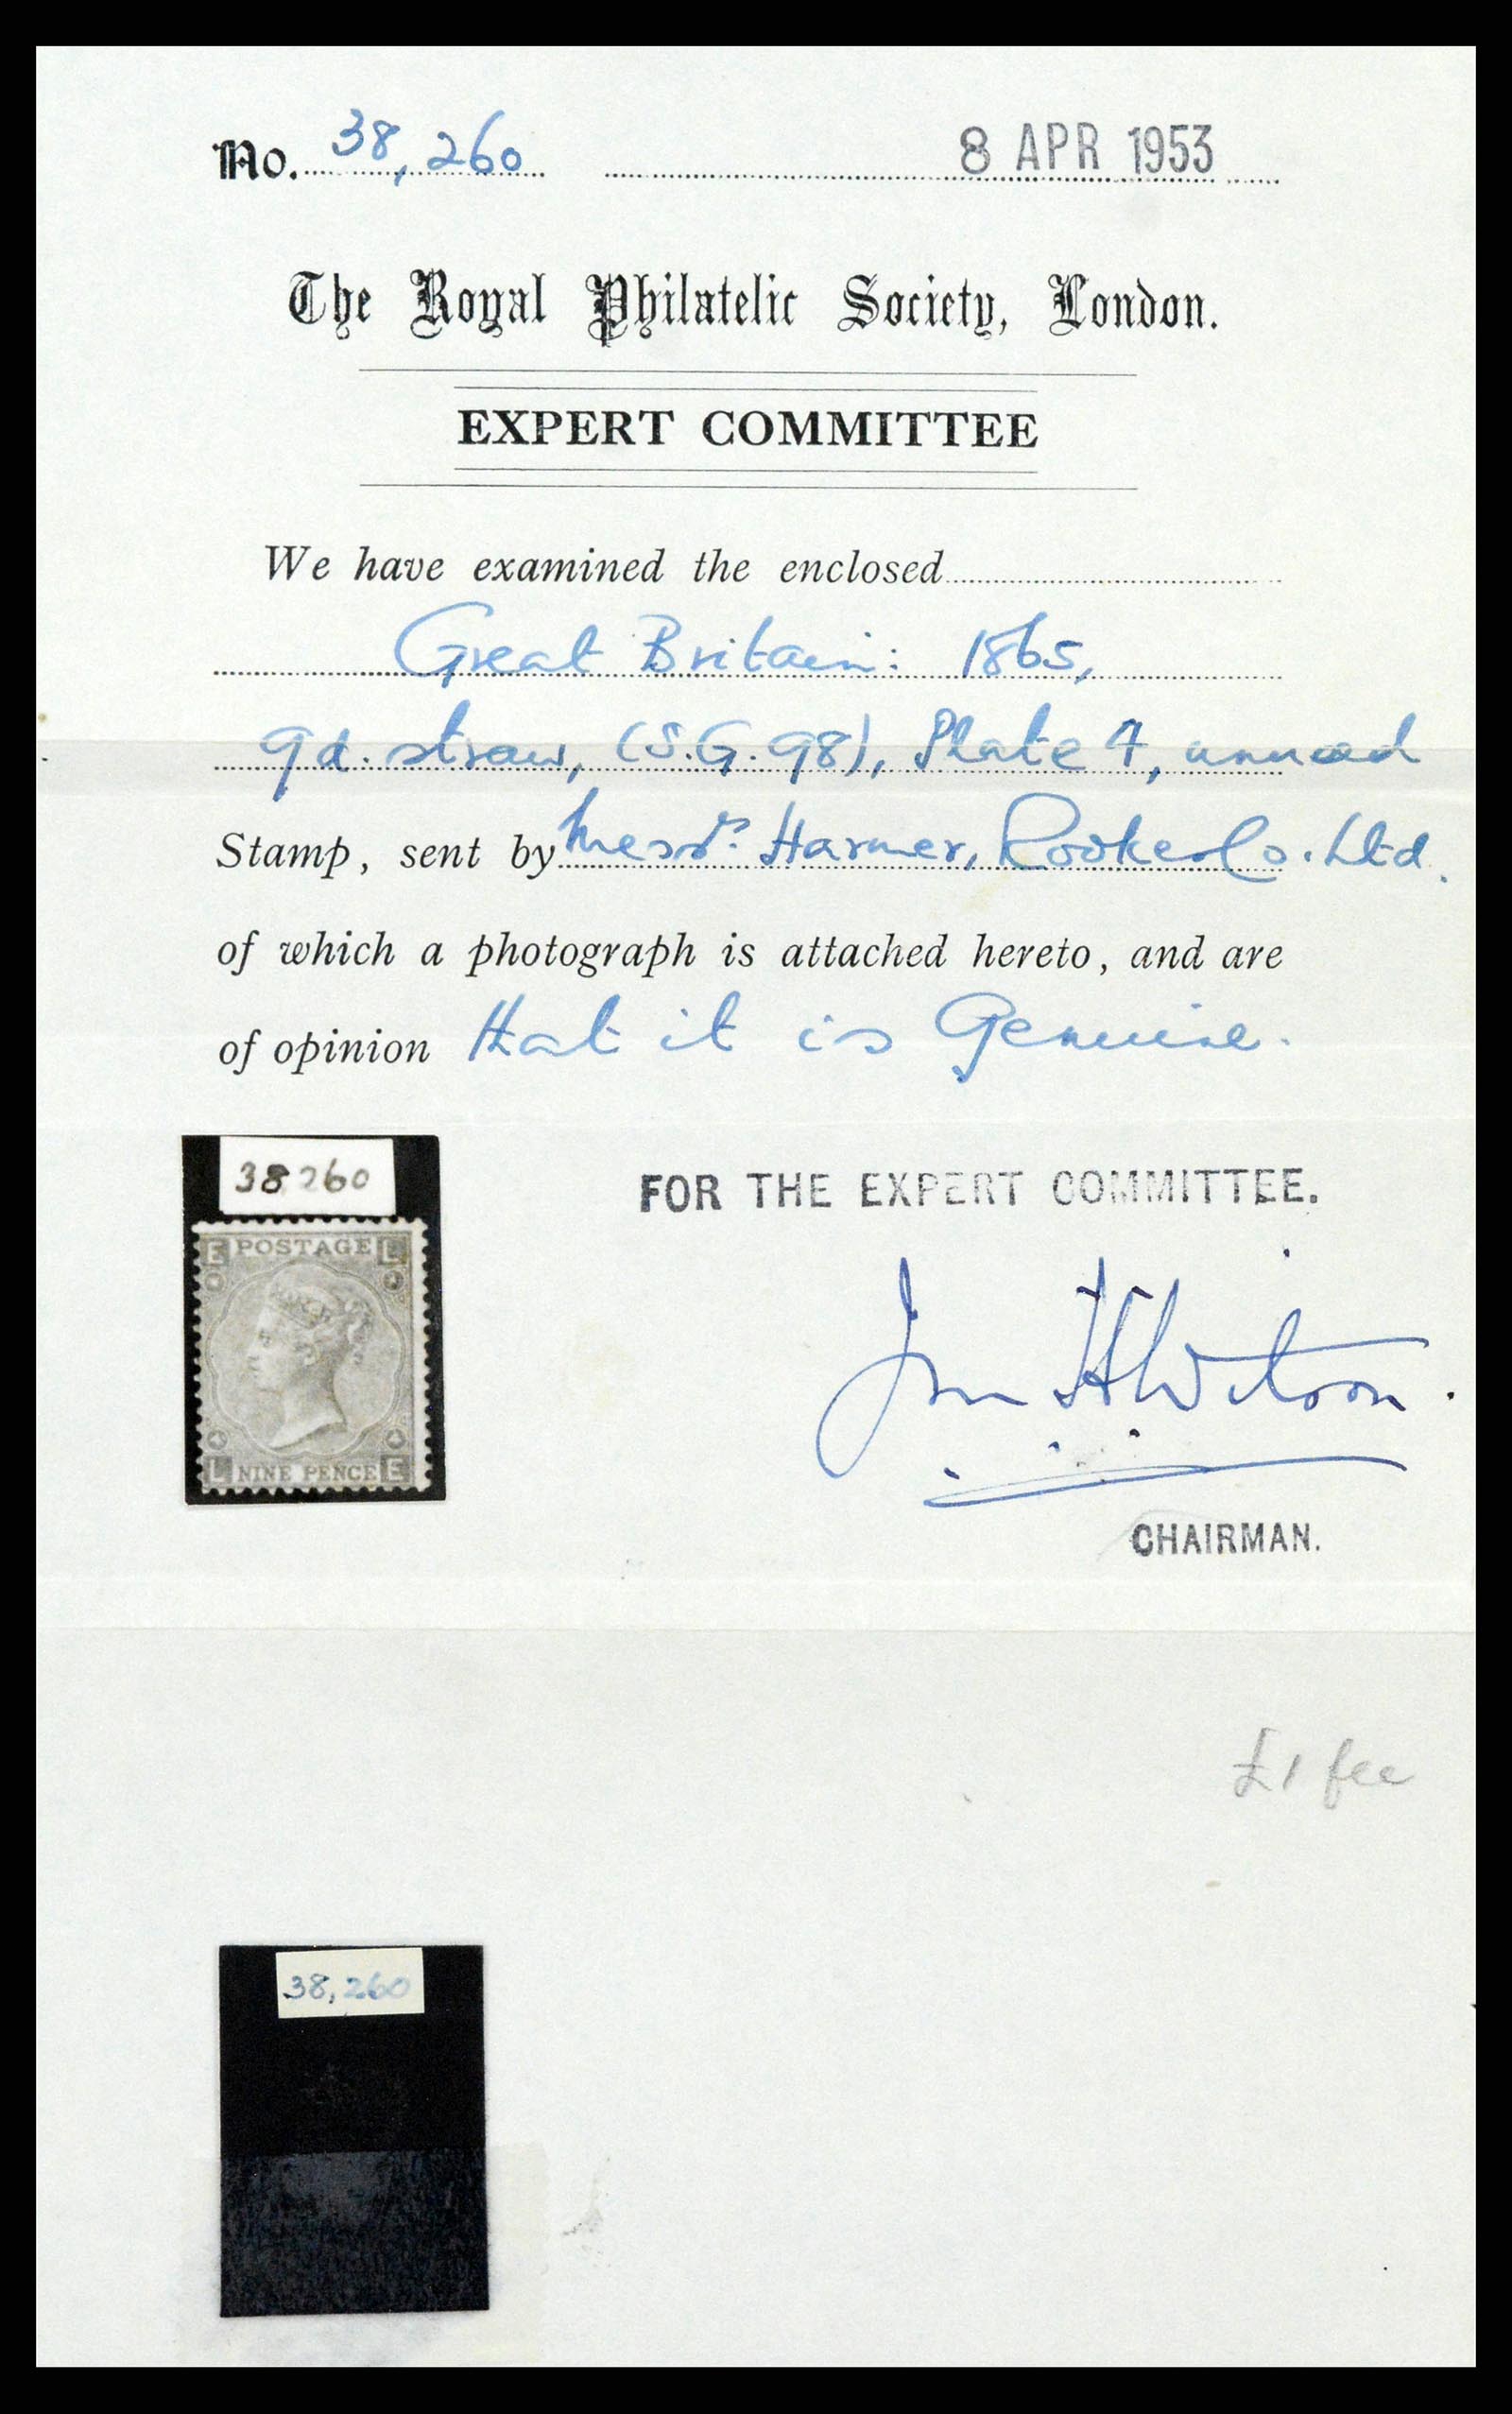 No. 38,260 8 APR 1953
The Royal Philatelic Society, London.
EXPERT COMMITTEE
We have examined the enclosed
Great Britain: 1865,
9d. straw, (S.G. 98), Plate 4, unused
Stamp, sent by Messrs. Harmer, Rooke & Co. Ltd.
of which a photograph is attached hereto, and are
of opinion that it is Genuine.
38260
E POSTAGE L
L NINE PENCE E
FOR THE EXPERT COMMITTEE.
Jn H Wilson.
CHAIRMAN.
£1 fee
38,260